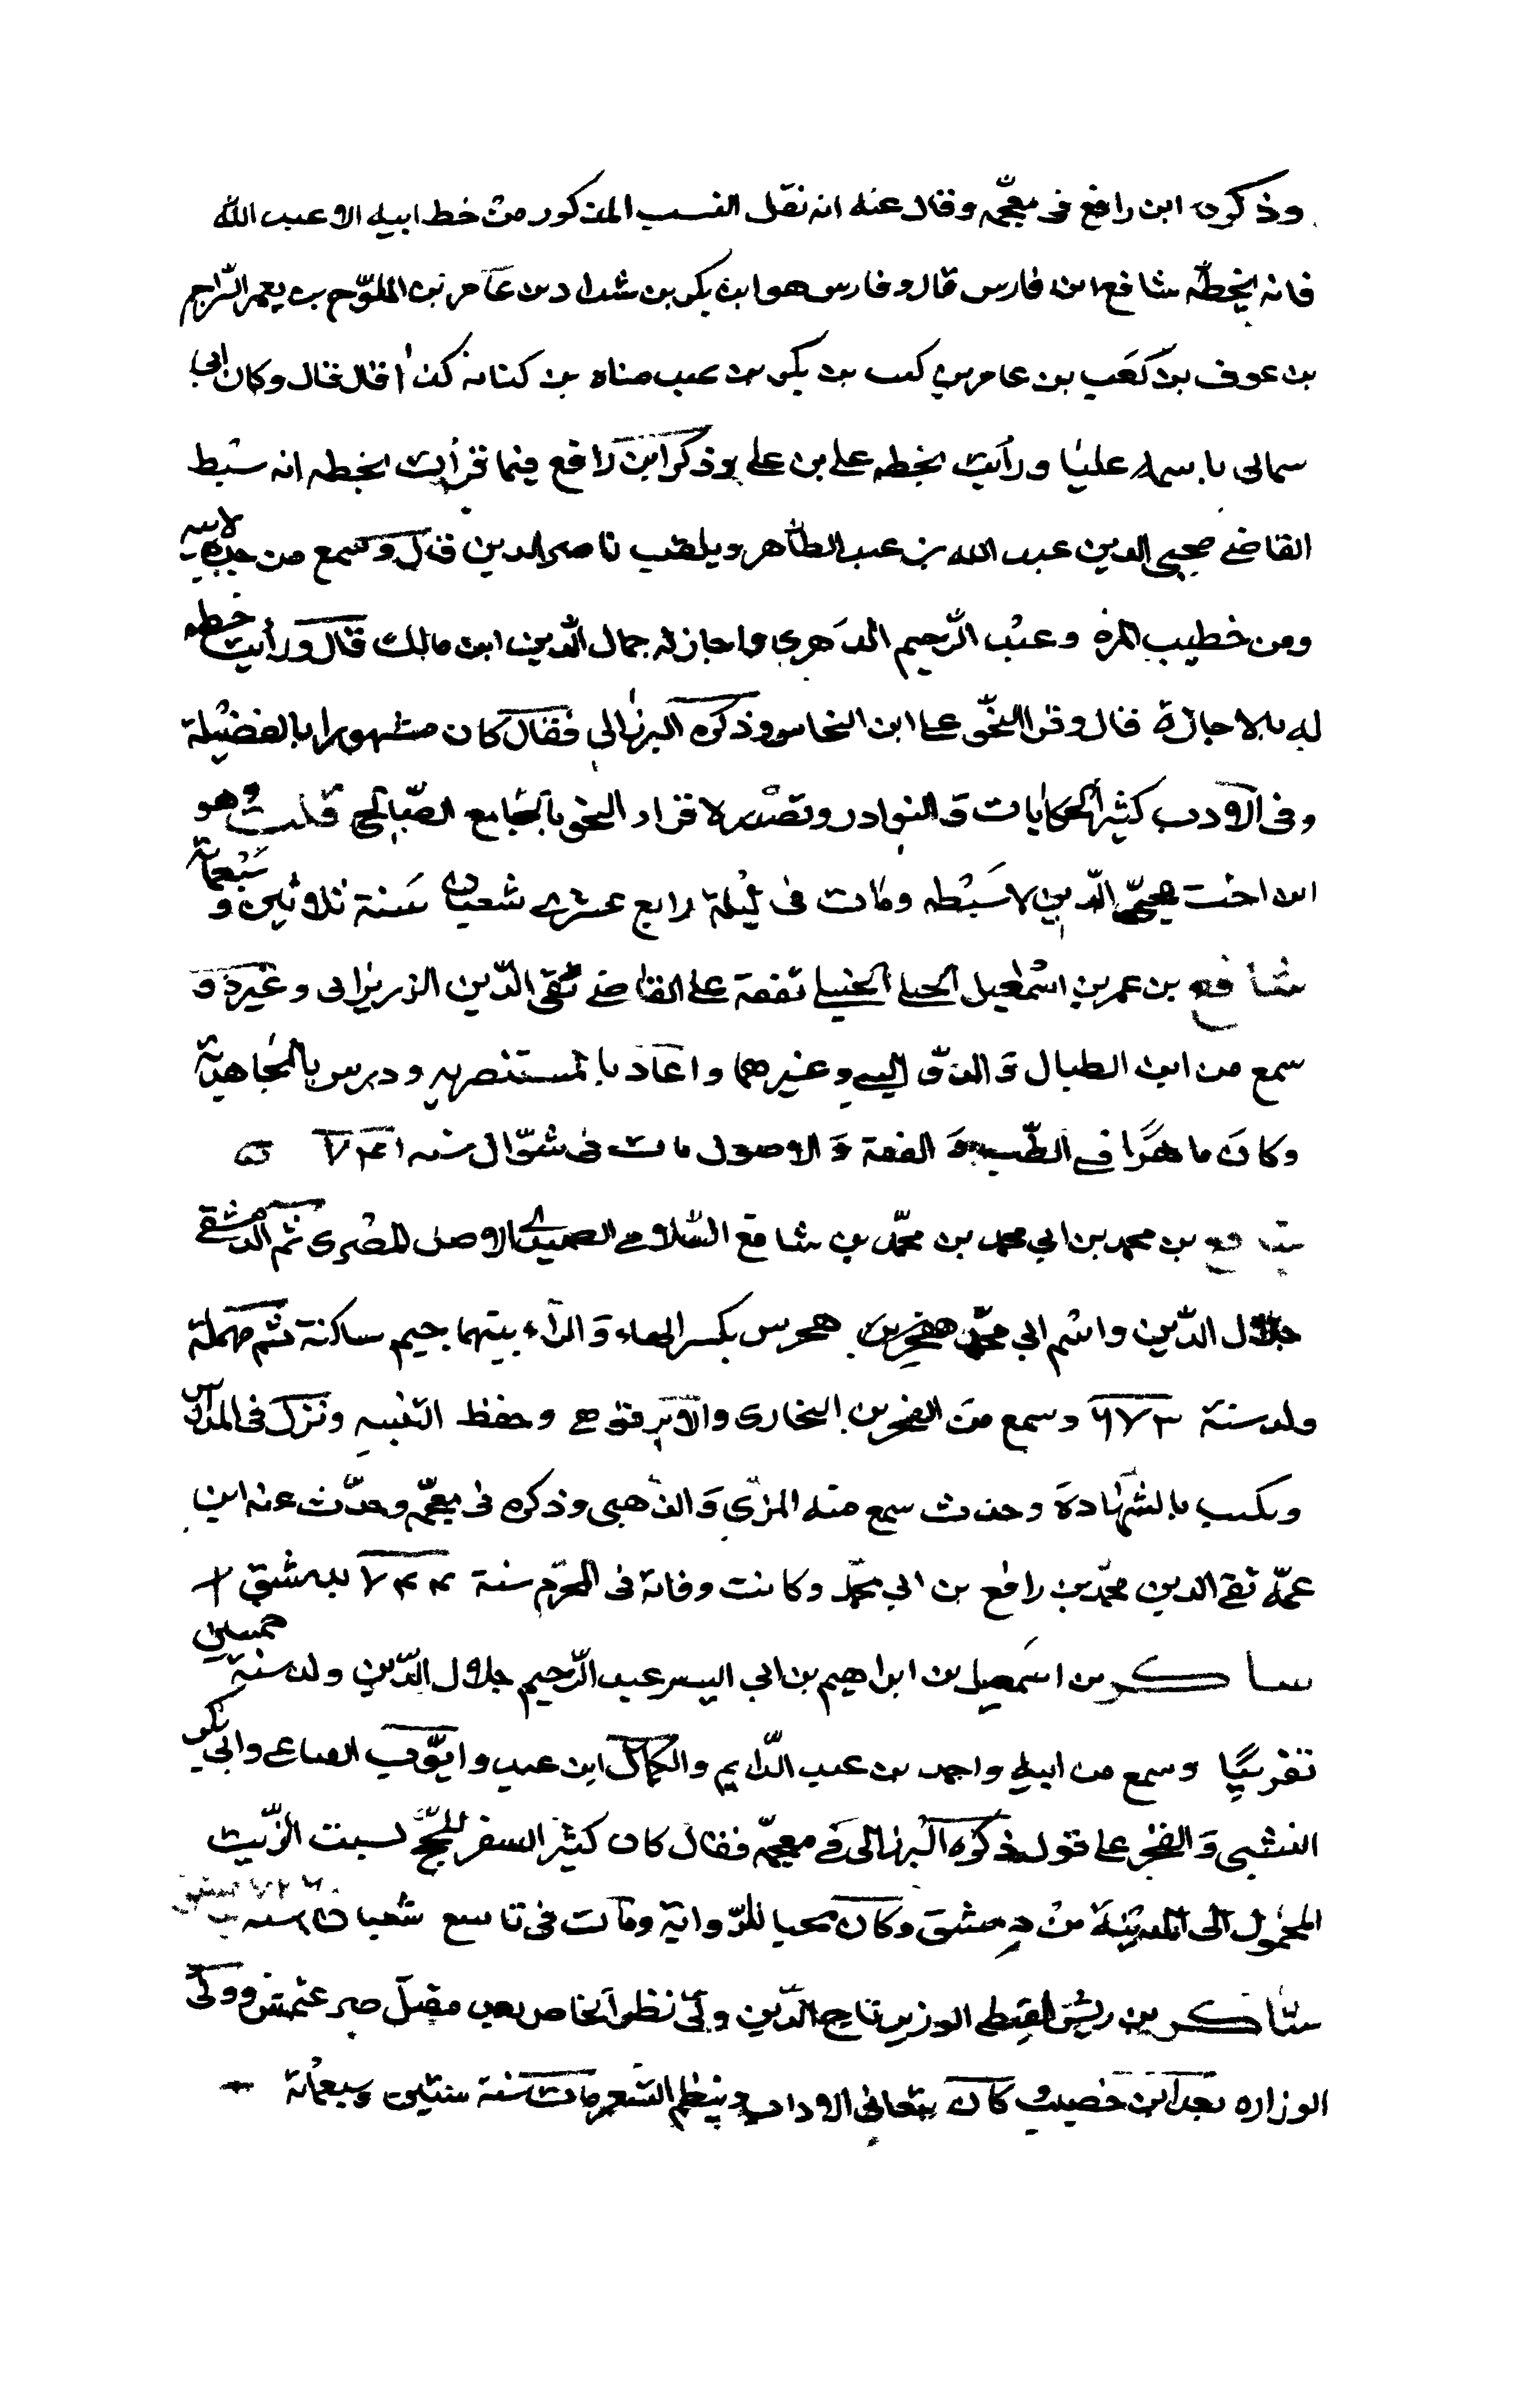 وذكره ابن رافع فى معجمه وقال عنه انه نقل النسب المذكور من خط ابيه الا عبد الله
فانه بخطه شافع ابن فارس قال وفارس هو ابن بكر بن شداد بن عامر بن الملوّح بن يعمر الشراج
بن عوف بن كعب بن عامر بن كعب بن بكر بن عبد مناة بن كنانه كذا قال قال وكان ابى
سمانى باسمه عليا ورأيت بخطه على بن على وذكر ابن رافع فيما قرأت بخطه انه سبط
القاضى محيى الدين عبد الله بن عبد الظاهر ويلقب ناصر الدين قال وسمع من جده لابيه
ومن خطيب المزه وعبد الرّحيم الدميرى واجاز له جمال الدين ابن مالك قال ورأيت خطه
له بالاجازة قال وقرا النحو على ابن النحاس وذكره البرزالى فقال كان مشهورا بالفضيلة
وفى الادب كثير الحكايات والنوادر وتصدر لاقراء النحو بالجامع الصالحى قلت وهو
ابن اخت محيى الدين لا سبطه ومات فى ليلة رابع عشرى شعبان سنة ثلاثين و سبعماية
شافع بن عمر بن اسمعيل الجيلى الحنبلى تفقه على القاضى تقى الدّين الزريرانى وغيره و
سمع من ابن الطبال والدواليبى وغيرهما واعاد بالمستنصريه ودرس بالمجاهدية
وكان ماهرًا فى الطّب والفقه والاصول مات فى شوّال سنه ٧٤١
شافع بن محمد بن ابى محمد بن محمّد بن شافع السّلامى الصميدى الاصل المصرى ثم الدمشقى
جلال الدّين واسم ابى محمّد هجرس بكسر الهاء والراء بينهما جيم ساكنة ثم مهملة
ولد سنة ٦٧٣ وسمع من الفخر بن البخارى والابرقوهى وحفظ التنبيه ونزل فى المدارس
وتكسب بالشهادة وحدث سمع منه المزى والذهبى وذكره فى معجمه وحدّث عنه ابن
عمّه تقى الدين محمّد بن رافع بن ابى محمّد وكانت وفاته فى المحرّم سنة ٧٤٤ بدمشق
شاكر بن اسمعيل بن ابراهيم بن ابى اليسر عبد الرّحيم جلال الدّين ولد سنة خمسين
تقريبًا وسمع من ابيه واحمد بن عبد الدّايم والكمال ابن عبد وايّوب الفقاعى وابى بكر
النشبى والفخر على قول ذكره البرزالى فى معجمه فقال كان كثير السفر للحجّ بسبب الزّيت
المحمول الى المدينة من دمشق وكان محبا للرّواية ومات فى تاسع شعبان سنه
شاكر بن ريشه القبطى الوزير تاج الدّين ولى نظر الخاص بعد مقتل صرغتمش وولى
الوزاره بعد ابن خصيب وكان يتعانى الاداب وينظم الشعر مات سنة ستين وسبعمائة